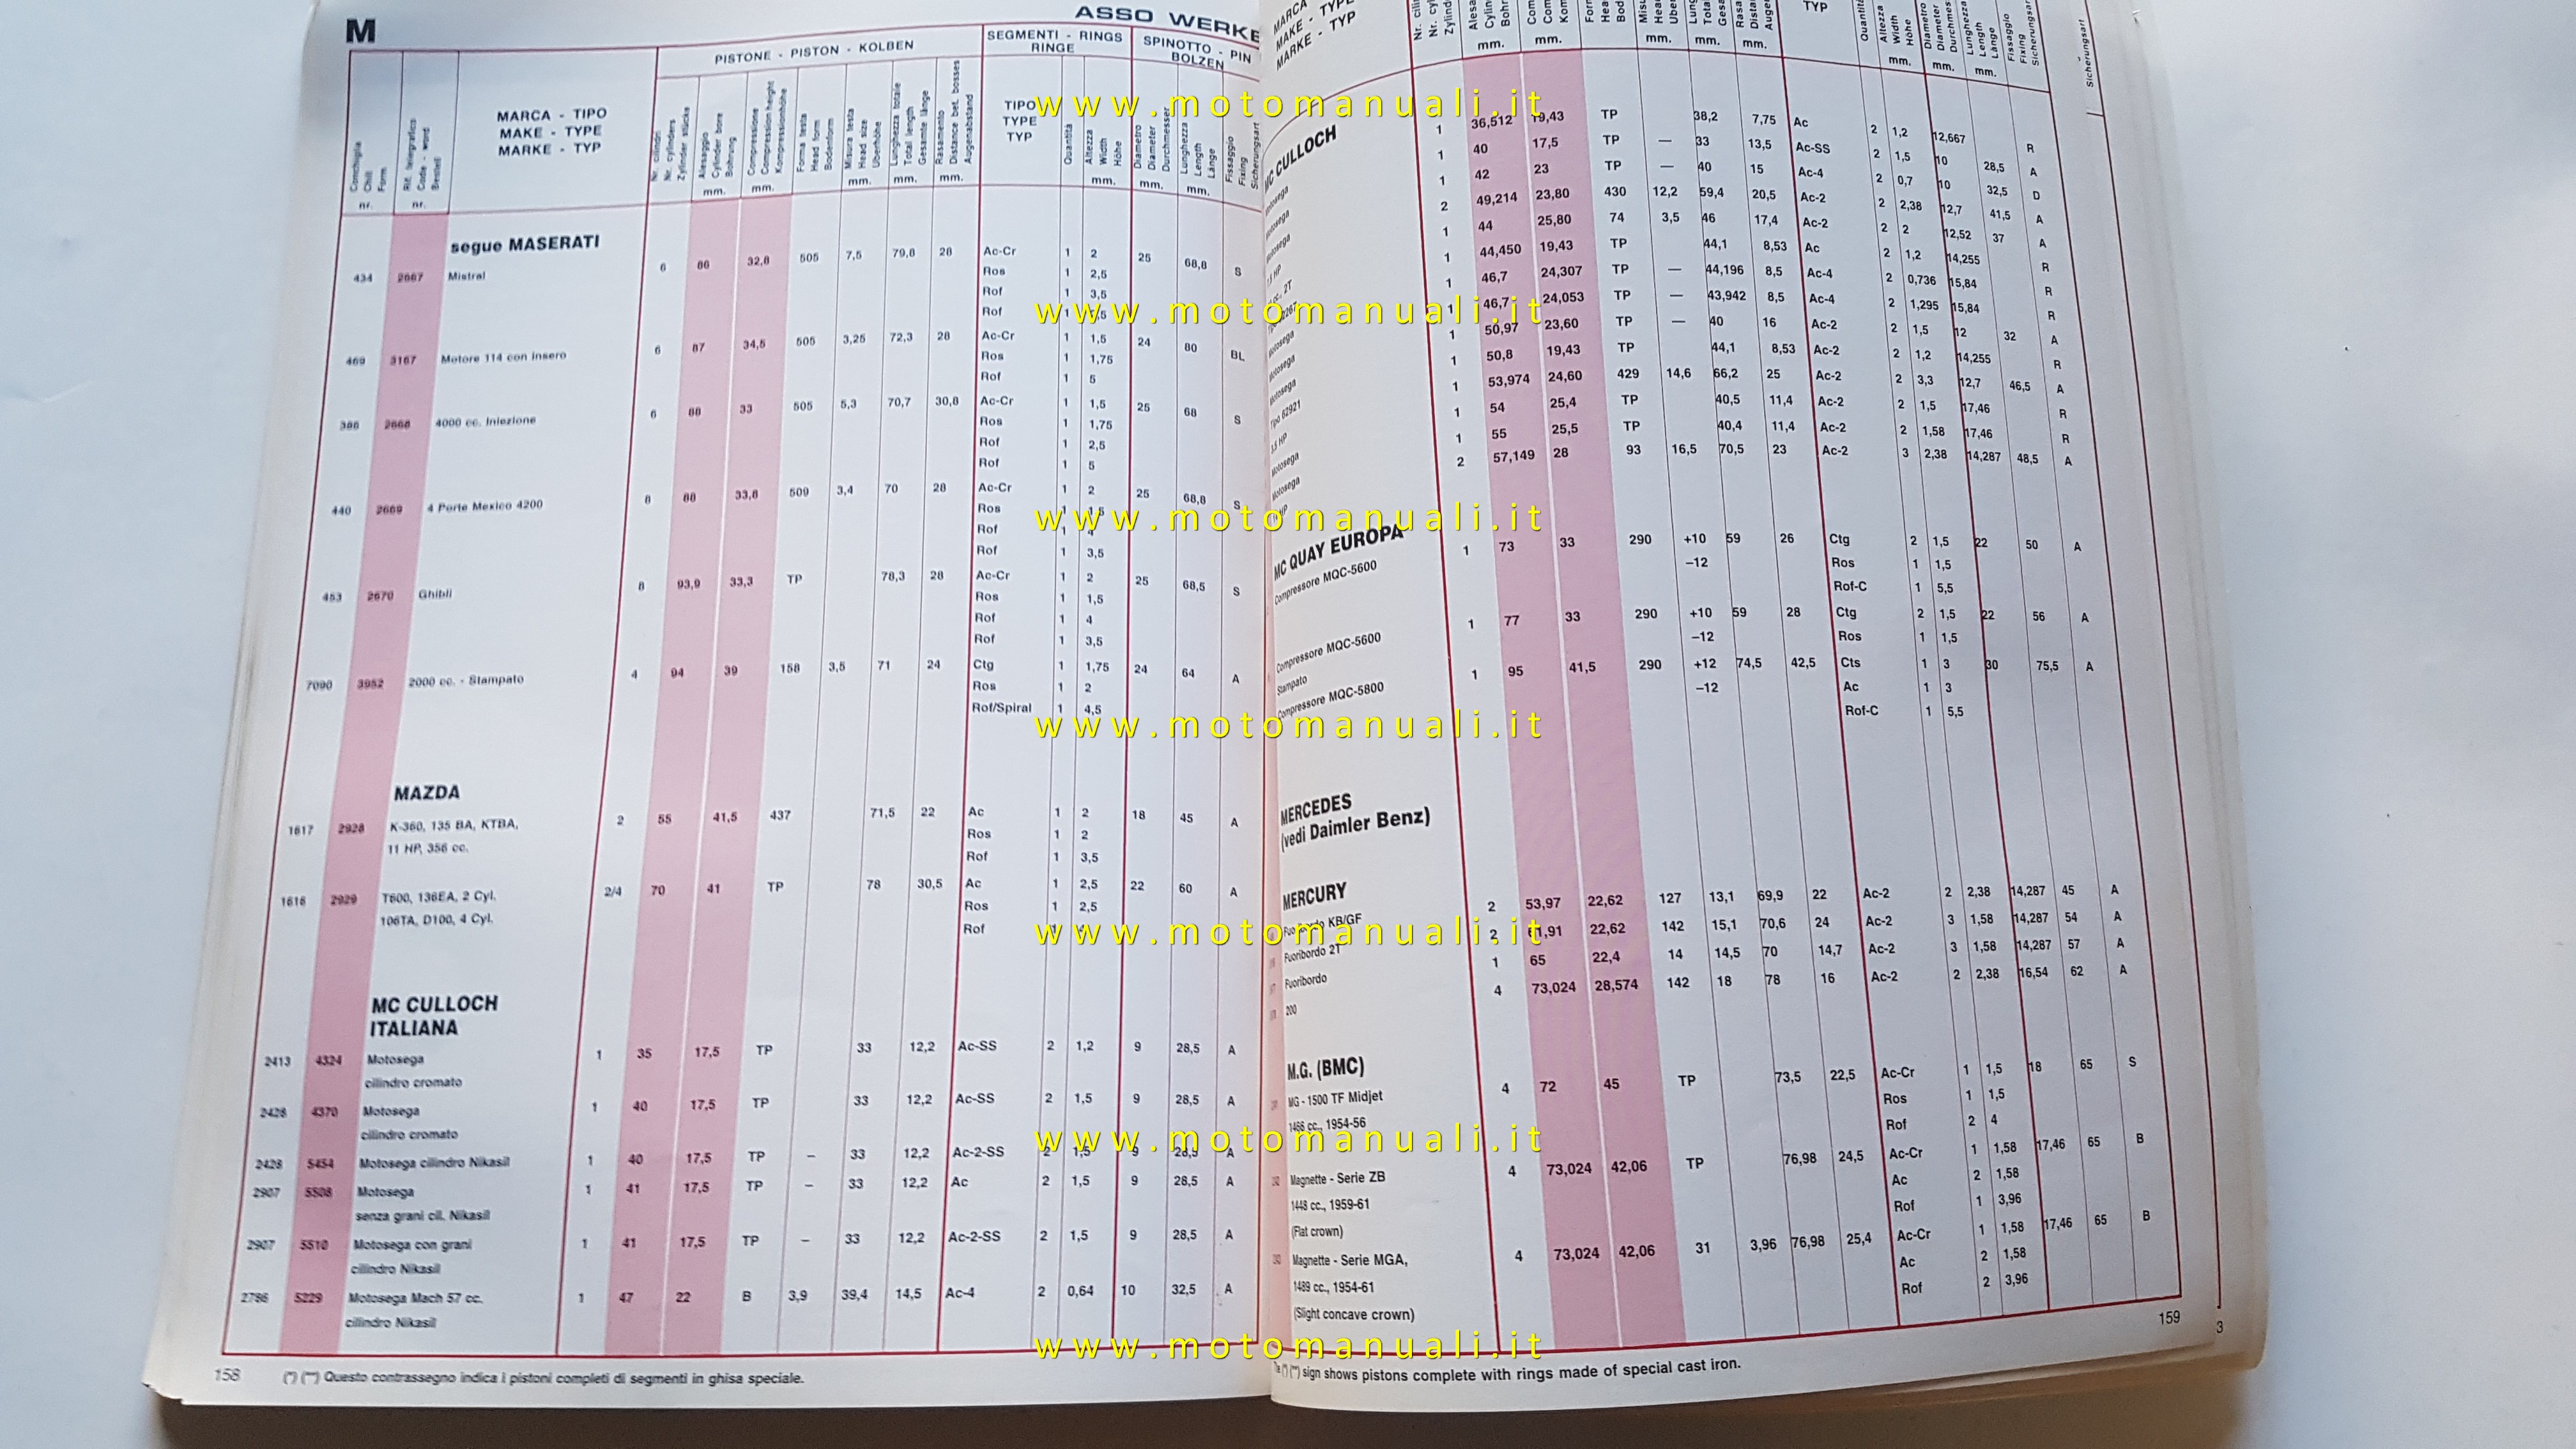 M
ASSO WERKE
PISTONE - PISTON - KOLBEN
SEGMENTI - RINGS
RINGE
SPINOTTO - PIN
BOLZEN
MARCA - TIPO
MAKE - TYPE
MARKE - TYP
TIPO
TYPE
TYP
segue MASERATI
434 2667 Mistral 6 86 32,8 505 7,5 79,8 28 Ac-Cr 1 2 25 68,8 S
Ros 1 2,5
Rof 1 3,5
Rof 1
469 3167 Motore 114 con insero 6 87 34,5 505 3,25 72,3 28 Ac-Cr 1 1,5 24 80 BL
Ros 1 1,75
Rof 1 5
386 2668 4000 cc. Iniezione 6 88 33 505 5,3 70,7 30,8 Ac-Cr 1 1,5 25 68 S
Ros 1 1,75
Rof 1 2,5
Rof 1 5
440 2669 4 Porte Mexico 4200 8 88 33,8 509 3,4 70 28 Ac-Cr 1 2 25 68,8 S
Ros 1 1,5
Rof 1 4
Rof 1 3,5
453 2670 Ghibli 8 93,9 33,3 TP 78,3 28 Ac-Cr 1 2 25 68,5 S
Ros 1 1,5
Rof 1 4
Rof 1 3,5
7090 3952 2000 cc. - Stampato 4 94 39 158 3,5 71 24 Ctg 1 1,75 24 64 A
Ros 1 2
Rof/Spiral 1 4,5
MAZDA
1617 2928 K-360, 135 BA, KTBA, 2 55 41,5 437 71,5 22 Ac 1 2 18 45 A
11 HP, 356 cc. Ros 1 2
Rof 1 3,5
1616 2929 T600, 136EA, 2 Cyl. 2/4 70 41 TP 78 30,5 Ac 1 2,5 22 60 A
106TA, D100, 4 Cyl. Ros 1 2,5
Rof 1
MC CULLOCH
ITALIANA
2413 4324 Motosega 1 35 17,5 TP 33 12,2 Ac-SS 2 1,2 9 28,5 A
cilindro cromato
2428 4370 Motosega 1 40 17,5 TP 33 12,2 Ac-SS 2 1,5 9 28,5 A
cilindro cromato
2428 5454 Motosega cilindro Nikasil 1 40 17,5 TP – 33 12,2 Ac-2-SS 2 1,5 9 28,5 A
2907 5508 Motosega 1 41 17,5 TP – 33 12,2 Ac 2 1,5 9 28,5 A
senza grani cil. Nikasil
2907 5510 Motosega con grani 1 41 17,5 TP – 33 12,2 Ac-2-SS 2 1,5 9 28,5 A
cilindro Nikasil
2786 5229 Motosega Mach 57 cc. 1 47 22 B 3,9 39,4 14,5 Ac-4 2 0,64 10 32,5 A
cilindro Nikasil
158
(*) (**) Questo contrassegno indica i pistoni completi di segmenti in ghisa speciale.
MARCA
MAKE - TYPE
MARKE - TYP
TYP
MC CULLOCH
1 36,512 19,43 TP 38,2 7,75 Ac 2 1,2 12,667 R
1 40 17,5 TP — 33 13,5 Ac-SS 2 1,5 10 28,5 A
1 42 23 TP — 40 15 Ac-4 2 0,7 10 32,5 D
2 49,214 23,80 430 12,2 59,4 20,5 Ac-2 2 2,38 12,7 41,5 A
1 44 25,80 74 3,5 46 17,4 Ac-2 2 2 12,52 37 A
1 44,450 19,43 TP 44,1 8,53 Ac 2 1,2 14,255 R
1 46,7 24,307 TP — 44,196 8,5 Ac-4 2 0,736 15,84 R
1 46,7 24,053 TP — 43,942 8,5 Ac-4 2 1,295 15,84 R
1 50,97 23,60 TP — 40 16 Ac-2 2 1,5 12 32 A
1 50,8 19,43 TP 44,1 8,53 Ac-2 2 1,2 14,255 R
1 53,974 24,60 429 14,6 66,2 25 Ac-2 2 3,3 12,7 46,5 A
1 54 25,4 TP 40,5 11,4 Ac-2 2 1,5 17,46 R
1 55 25,5 TP 40,4 11,4 Ac-2 2 1,58 17,46 R
2 57,149 28 93 16,5 70,5 23 Ac-2 3 2,38 14,287 48,5 A
MC QUAY EUROPA
Compressore MQC-5600 1 73 33 290 +10 59 26 Ctg 2 1,5 22 50 A
–12 Ros 1 1,5
Rof-C 1 5,5
Compressore MQC-5600 1 77 33 290 +10 59 28 Ctg 2 1,5 22 56 A
Stampato –12 Ros 1 1,5
Compressore MQC-5800 1 95 41,5 290 +12 74,5 42,5 Cts 1 3 30 75,5 A
–12 Ac 1 3
Rof-C 1 5,5
MERCEDES
(vedi Daimler Benz)
MERCURY
Fuoribordo KB/GF 2 53,97 22,62 127 13,1 69,9 22 Ac-2 2 2,38 14,287 45 A
Fuoribordo 2T 2 61,91 22,62 142 15,1 70,6 24 Ac-2 3 1,58 14,287 54 A
Fuoribordo 1 65 22,4 14 14,5 70 14,7 Ac-2 3 1,58 14,287 57 A
200 4 73,024 28,574 142 18 78 16 Ac-2 2 2,38 16,54 62 A
M.G. (BMC)
MG - 1500 TF Midjet 4 72 45 TP 73,5 22,5 Ac-Cr 1 1,5 18 65 S
1466 cc., 1954-56 Ros 1 1,5
Rof 2 4
Magnette - Serie ZB 4 73,024 42,06 TP 76,98 24,5 Ac-Cr 1 1,58 17,46 65 B
1448 cc., 1959-61 Ac 2 1,58
(Flat crown) Rof 1 3,96
Magnette - Serie MGA, 4 73,024 42,06 31 3,96 76,98 25,4 Ac-Cr 1 1,58 17,46 65 B
1489 cc., 1954-61 Ac 2 1,58
(Slight concave crown) Rof 2 3,96
159
3
sign shows pistons complete with rings made of special cast iron.
www.motomanuali.it
www.motomanuali.it
www.motomanuali.it
www.motomanuali.it
www.motomanuali.it
www.motomanuali.it
www.motomanuali.it